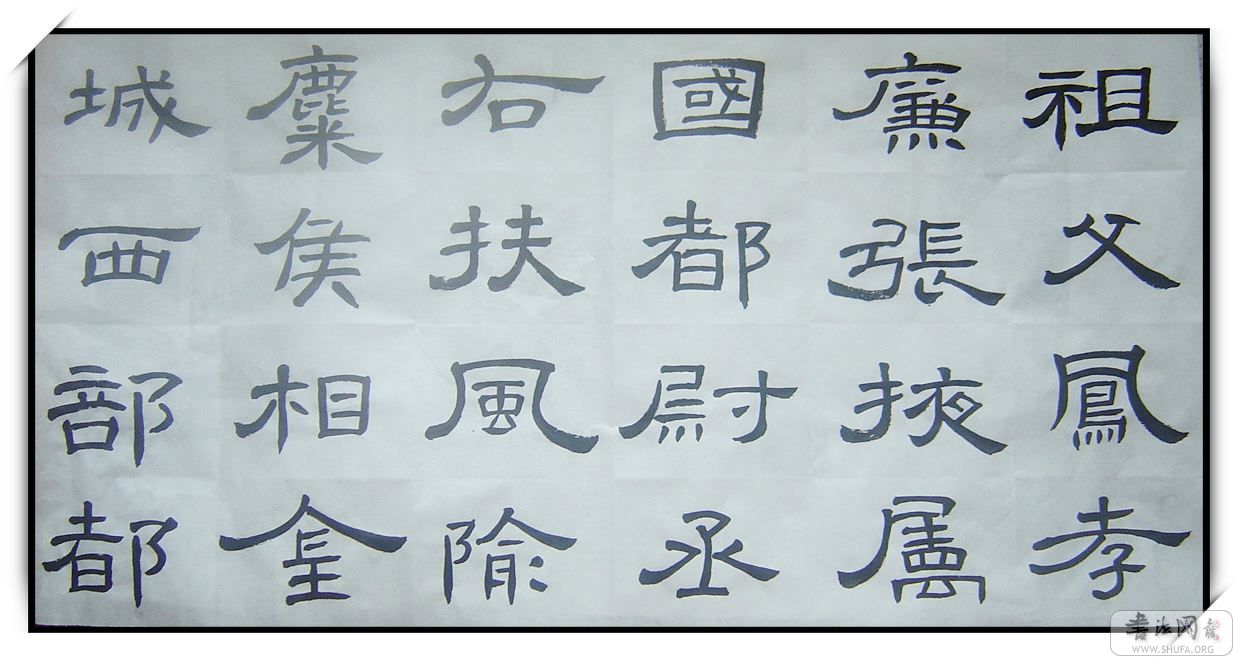 祖父鳳孝
廉張掖屬
國都尉丞
右扶風隃
麋侯相金
城西部都
书法网
WWW.SHUFA.ORG